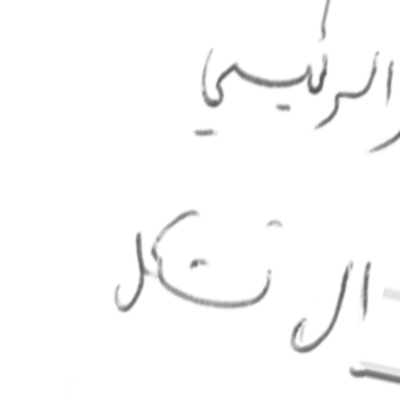 الرئيسي
الشكل